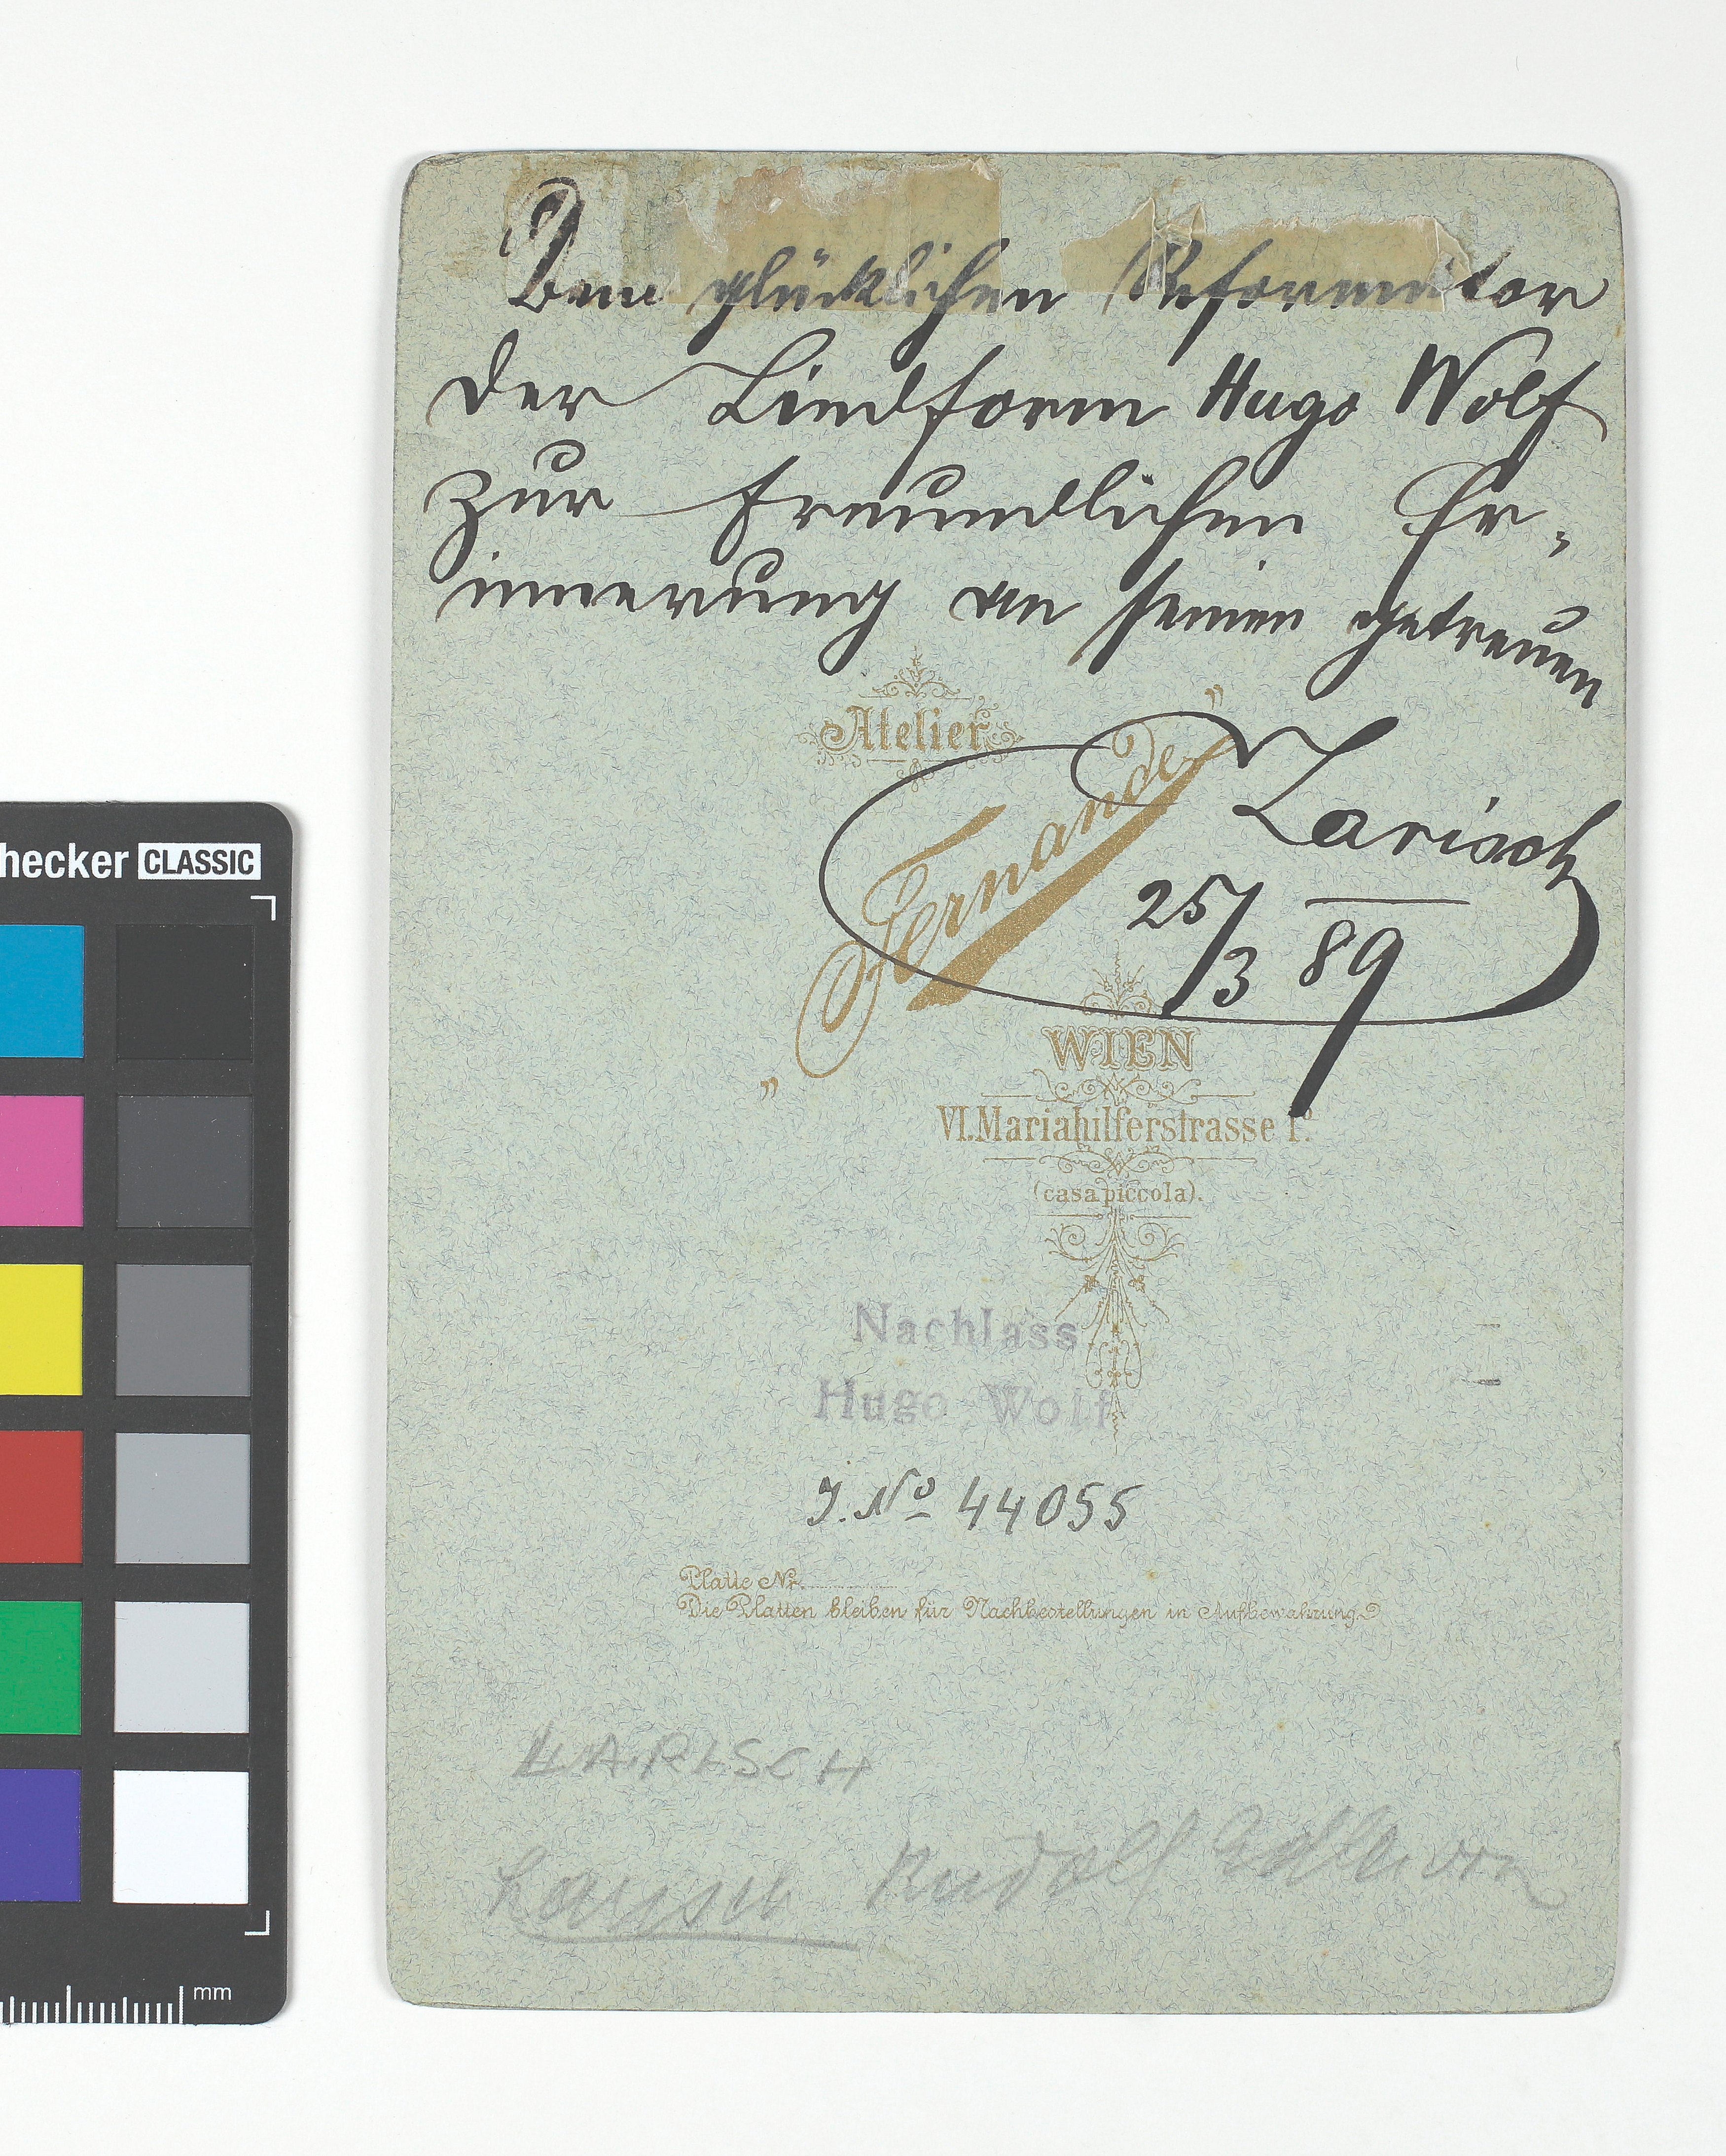 Dem glücklichen Reformator
der Liedform Hugo Wolf
zur freundlichen Er-
innerung an seinen getreuen
Larisch
25/3 89
Atelier
„Fernande"
WIEN
VI. Mariahilferstrasse 1ᵇ
(casa piccola).
Nachlass
Hugo Wolf
I. No 44055
Platte Nr.
Die Platten bleiben für Nachbestellungen in Aufbewahrung
LARISCH
Larisch Rudolf Edler von
hecker CLASSIC
mm